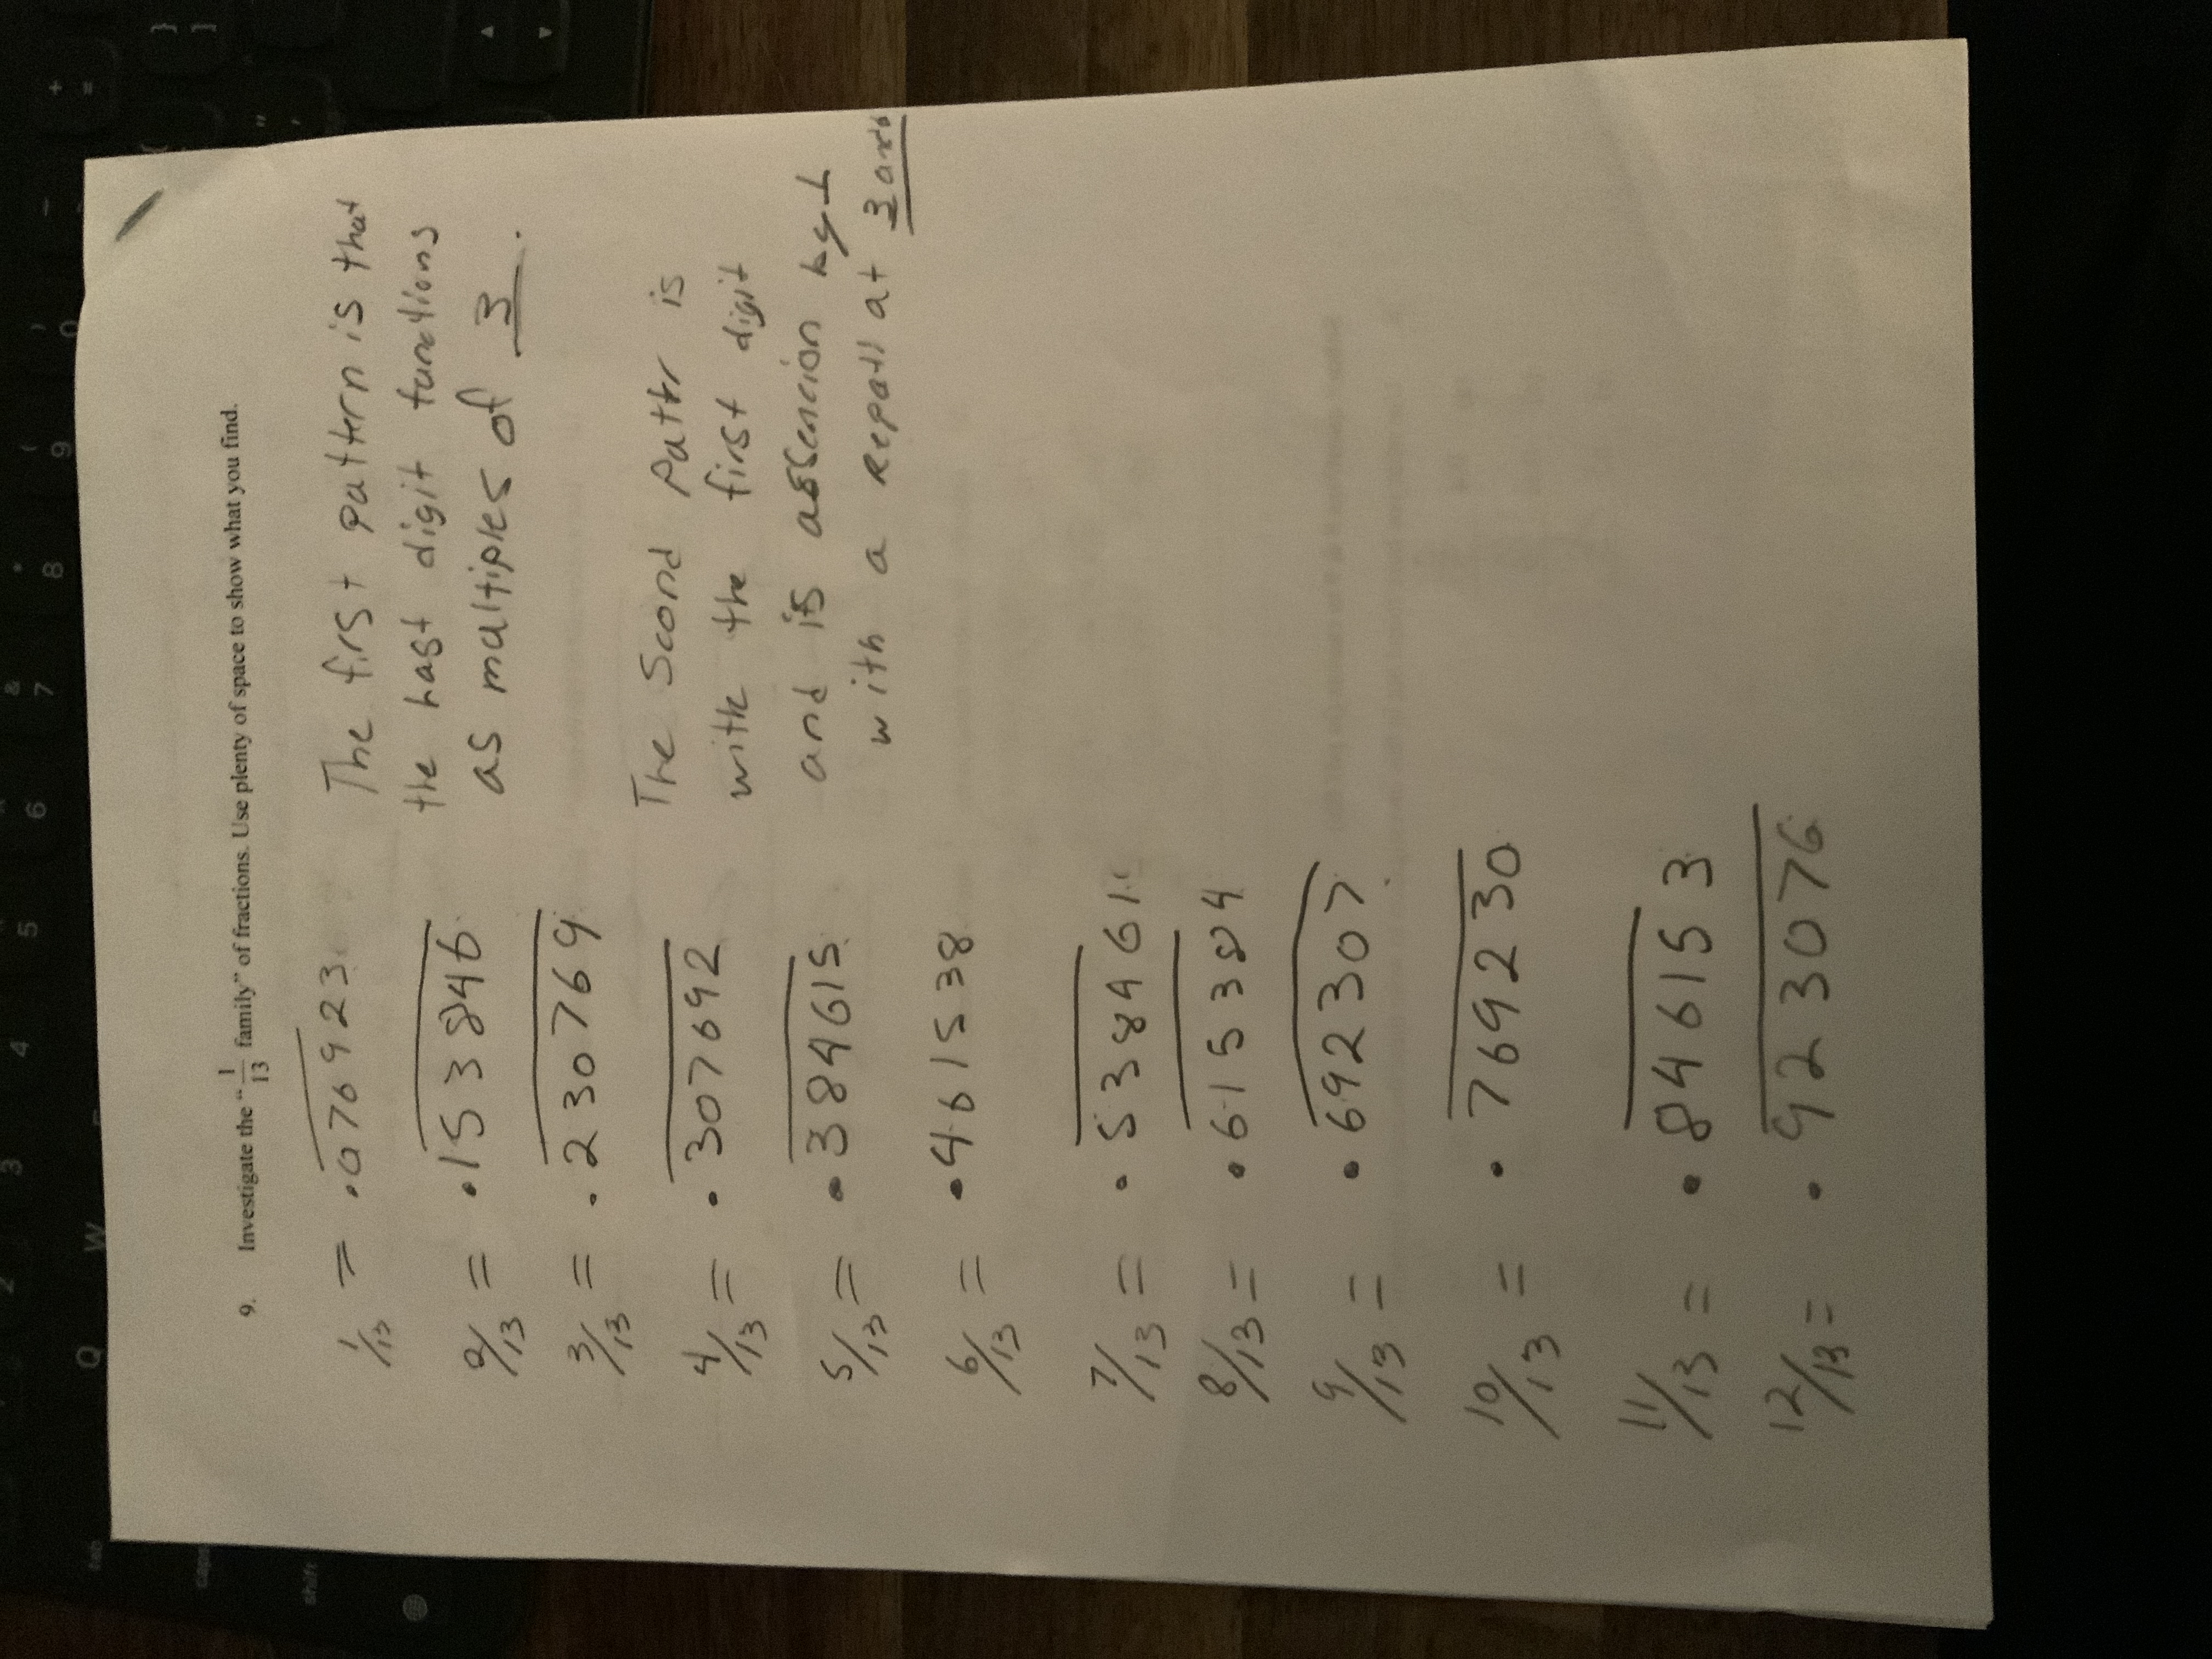 9. Investigate the "1/13 family" of fractions. Use plenty of space to show what you find.
1/13 = .076923
2/13 = .153846
3/13 = .230769
4/13 = .307692
5/13 = .384615
6/13 = .461538
7/13 = .538461
8/13 = .615384
9/13 = .692307
10/13 = .769230
11/13 = .846153
12/13 = .923076
The first pattern is that
the last digit functions
as multiples of 3.
The Second is
with the first digit
and is
with a at 3
Q W
tab
caps
shift
2 3 4 5 6 7 8 9 0
& * ( )
- + =
} ]
" '